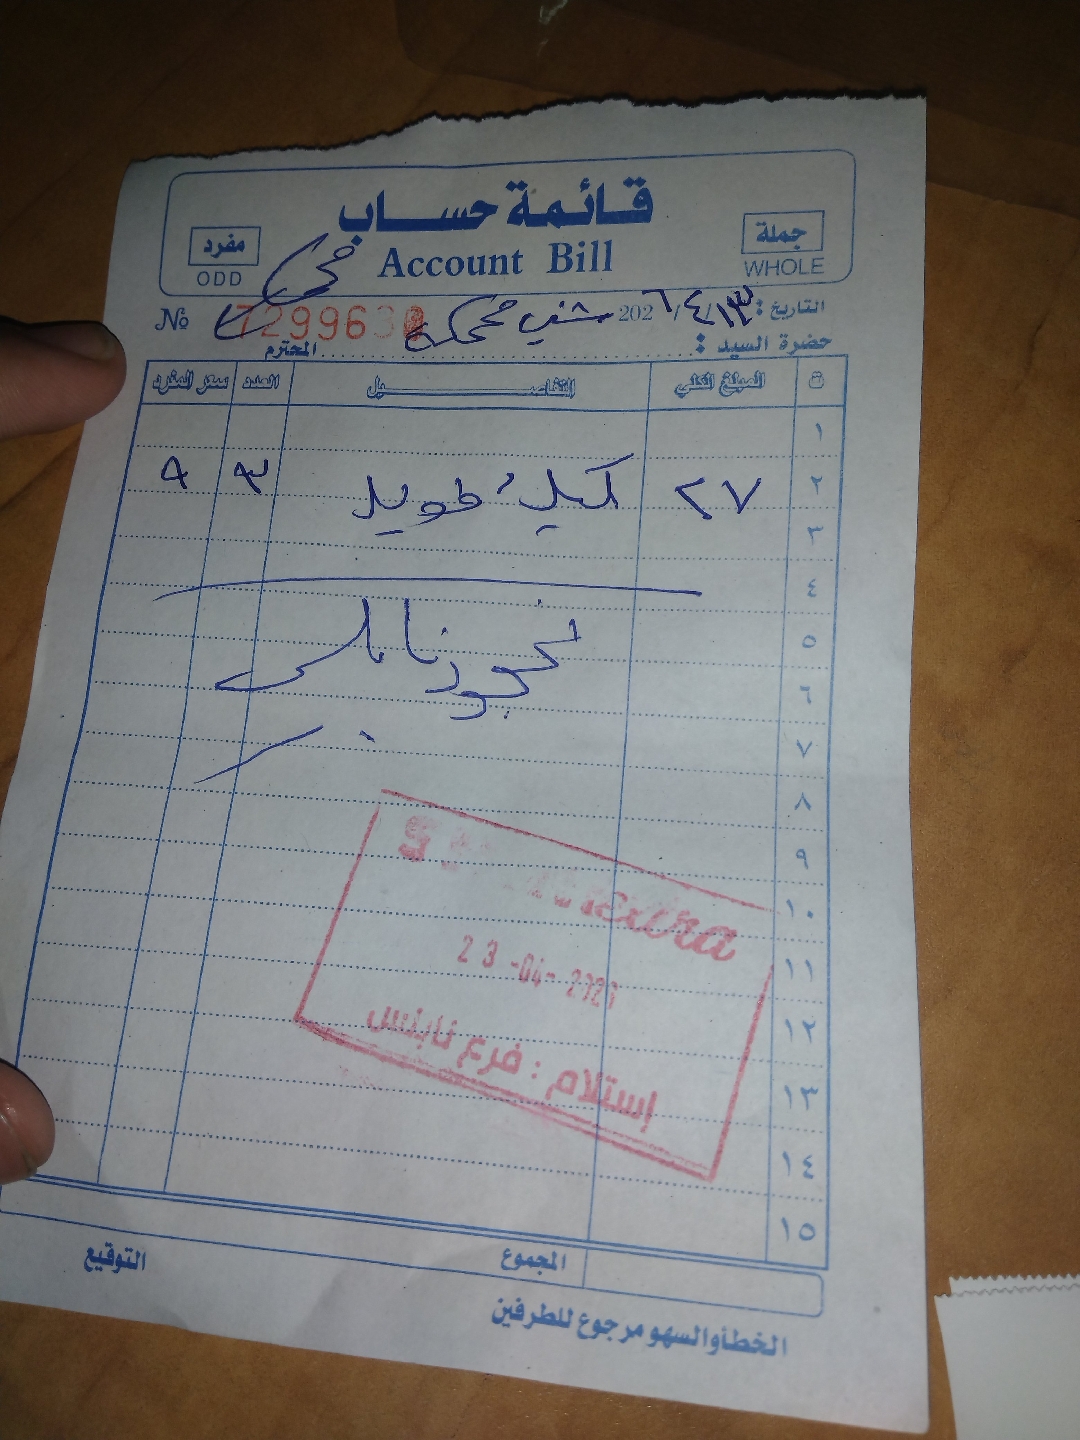 قائمة حساب
جملة
مفرد
Account Bill
WHOLE
ODD
التاريخ : ١٣/٤/2026
№ 7299630
حضرة السيد : المحترم
ت المبلغ الكلي التفاصيل العدد سعر المفرد
١
٢ ٢٧ كيك طويل ٣ ٩
٣
٤
٥
٦
٧
٨
٩
١٠
١١
23-04-202
١٢
إستلام : فرع نابلس
١٣
١٤
١٥
المجموع
التوقيع
الخطأ والسهو مرجوع للطرفين